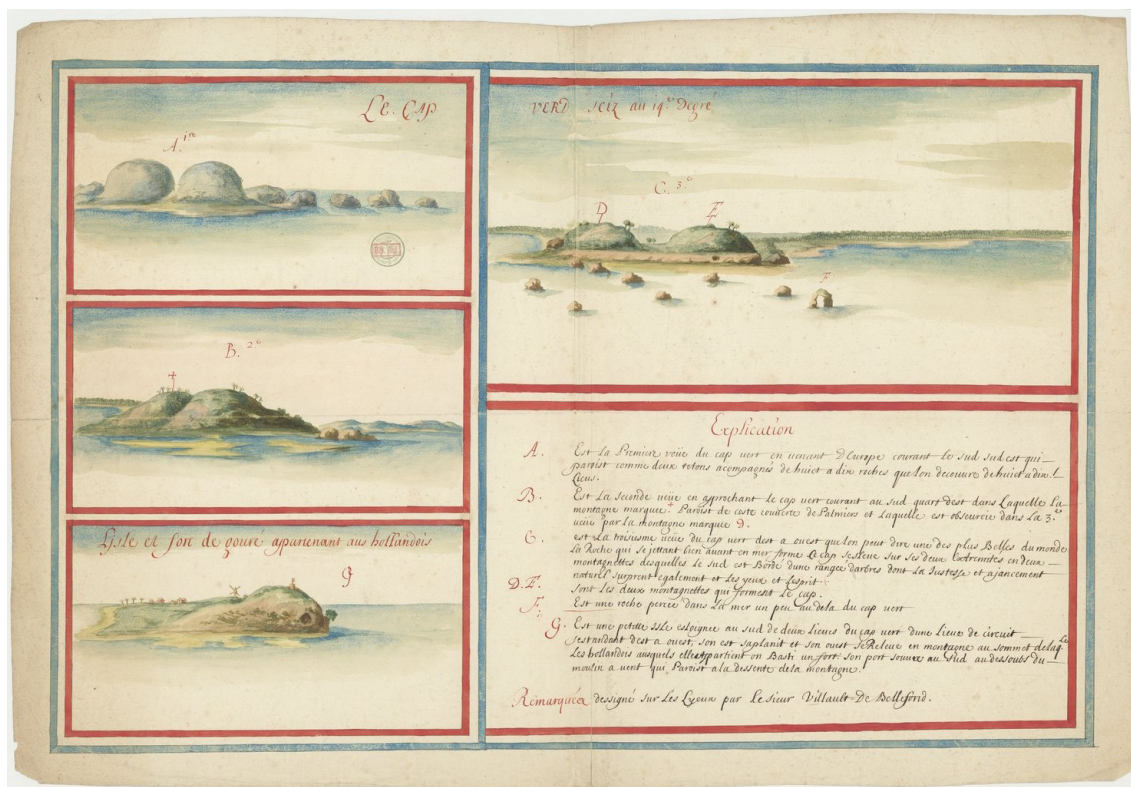 LE CAP
VERD seiz au 14.e Degré
A. 1re
B. 2.e
C. 3.e
D
E
F
L'isle et fort de goure appartenant aus hollandois
G
Explication
A. Est La Premiere voüe du cap vert en uenant d'Europe courant le sud sud est qui
paroist comme deux tetons acompagnés de huict a dix roches que lon decouure de huict a dix
Lieus.
B. Est La seconde ueüe en aprochant le cap vert courant au sud quart dest dans Laquelle La
montagne marquée + Paroist de coste couuerte de Palmiers et Laquelle est obscurcie dans La 3.e
ueüe par La montagne marquée D.
C. est La troisiesme ueüe du cap vert dest a ouest que lon peut dire une des plus Belles du monde
La Roche qui se jettant bien auant en mer forme Le cap sesleue sur ses deux extremités en deux
montagnettes desquelles le sud est Bordé dune rangée darbres dont La Justesse et ajancement
naturel surprent egalement et Les yeux et Lesprit
D.E. sont Les deux montagnettes qui forment Le cap.
F. Est une roche percée dans La mer un peu au dela du cap vert
G. Est une petitte isle esloignée au sud de deux Lieues du cap vert dune Lieue de circuit
sestandant dest a ouest, son est saplanit et son ouest se Releue en montagne au sommet de laq.le
Les hollandois ausquels elle apartient on Basti un fort son port souure au sud au dessoubs du
moulin a vent qui Paroist a la dessente de la montagne.
Remarquéez dessigné sur Les Lyeux par Le sieur Villault De Bellefond.